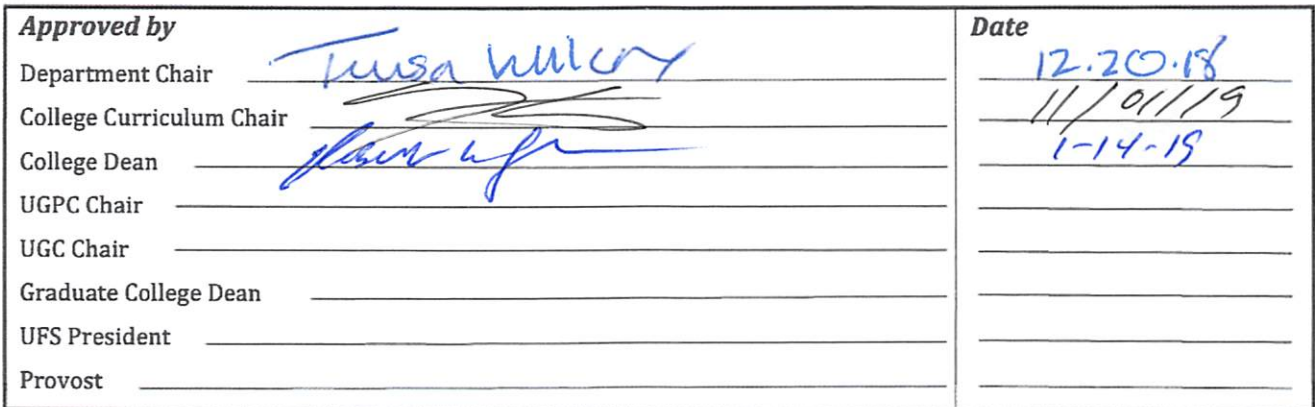 Approved by Date
Department Chair 12.20.18
College Curriculum Chair 11/01/19
College Dean 1-14-19
UGPC Chair
UGC Chair
Graduate College Dean
UFS President
Provost